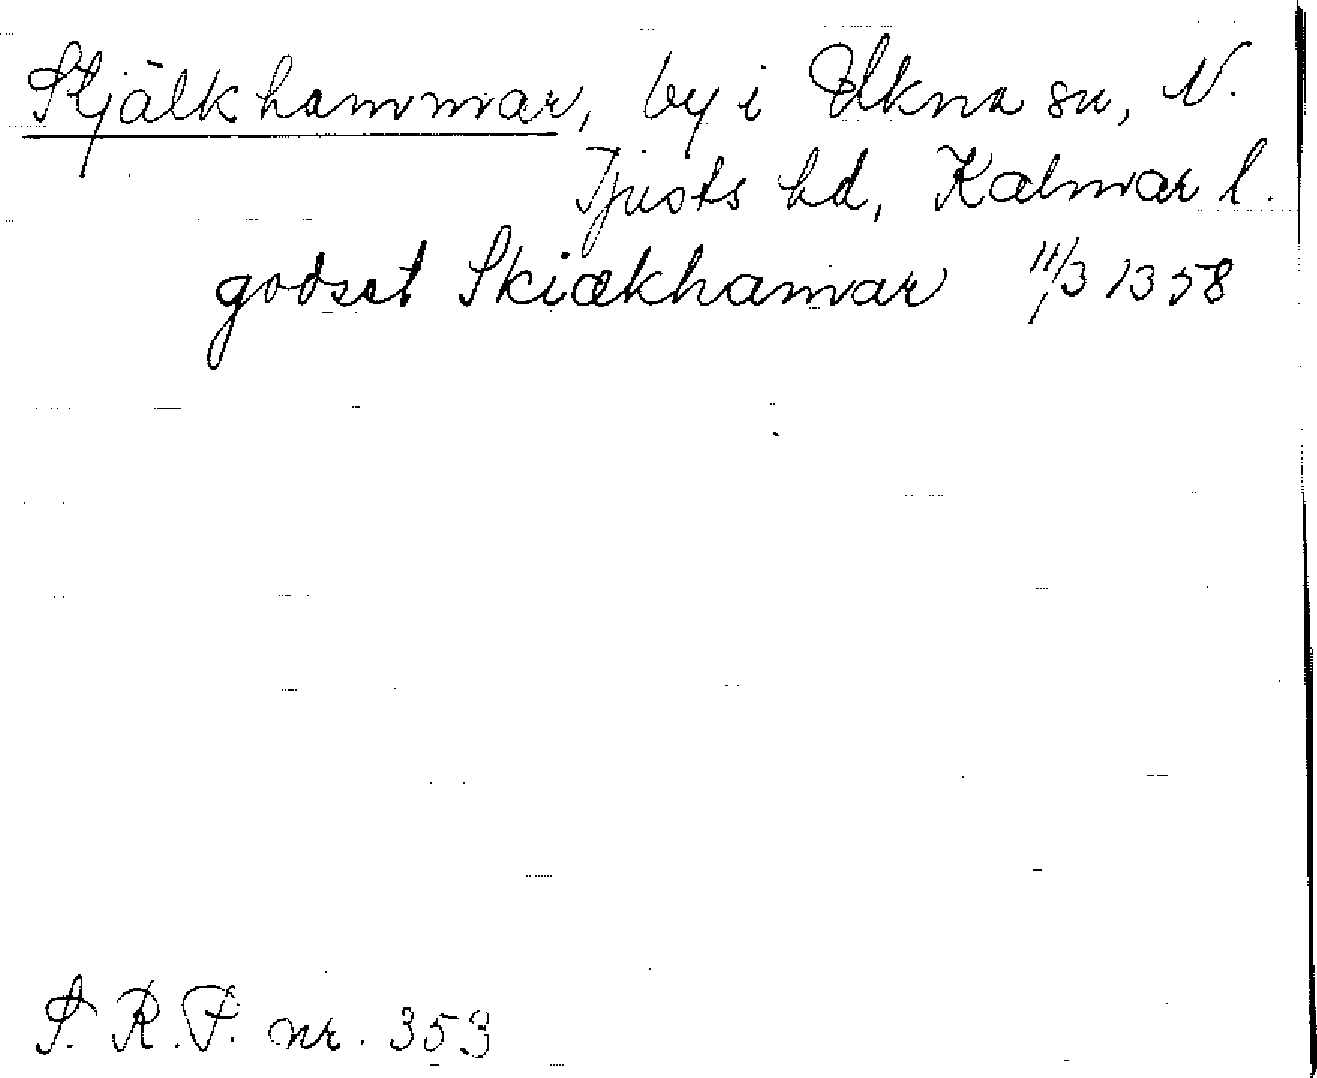 Stjälkhammar, by i Ukna sn, N.
Tjusts hd, Kalmar l.
godset Skiækhamar 11/3 1358
S.R.P. nr. 353